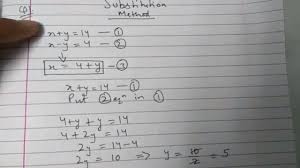 Q1 Substitution
Method
x+y=14 — ①
x-y=4 — ②
x = 4+y — ③
x+y=14 — ①
Put ② eqn in ①
4+y+y = 14
4+2y = 14
2y = 14-4
2y = 10 ⇒ y = 10/2 = 5